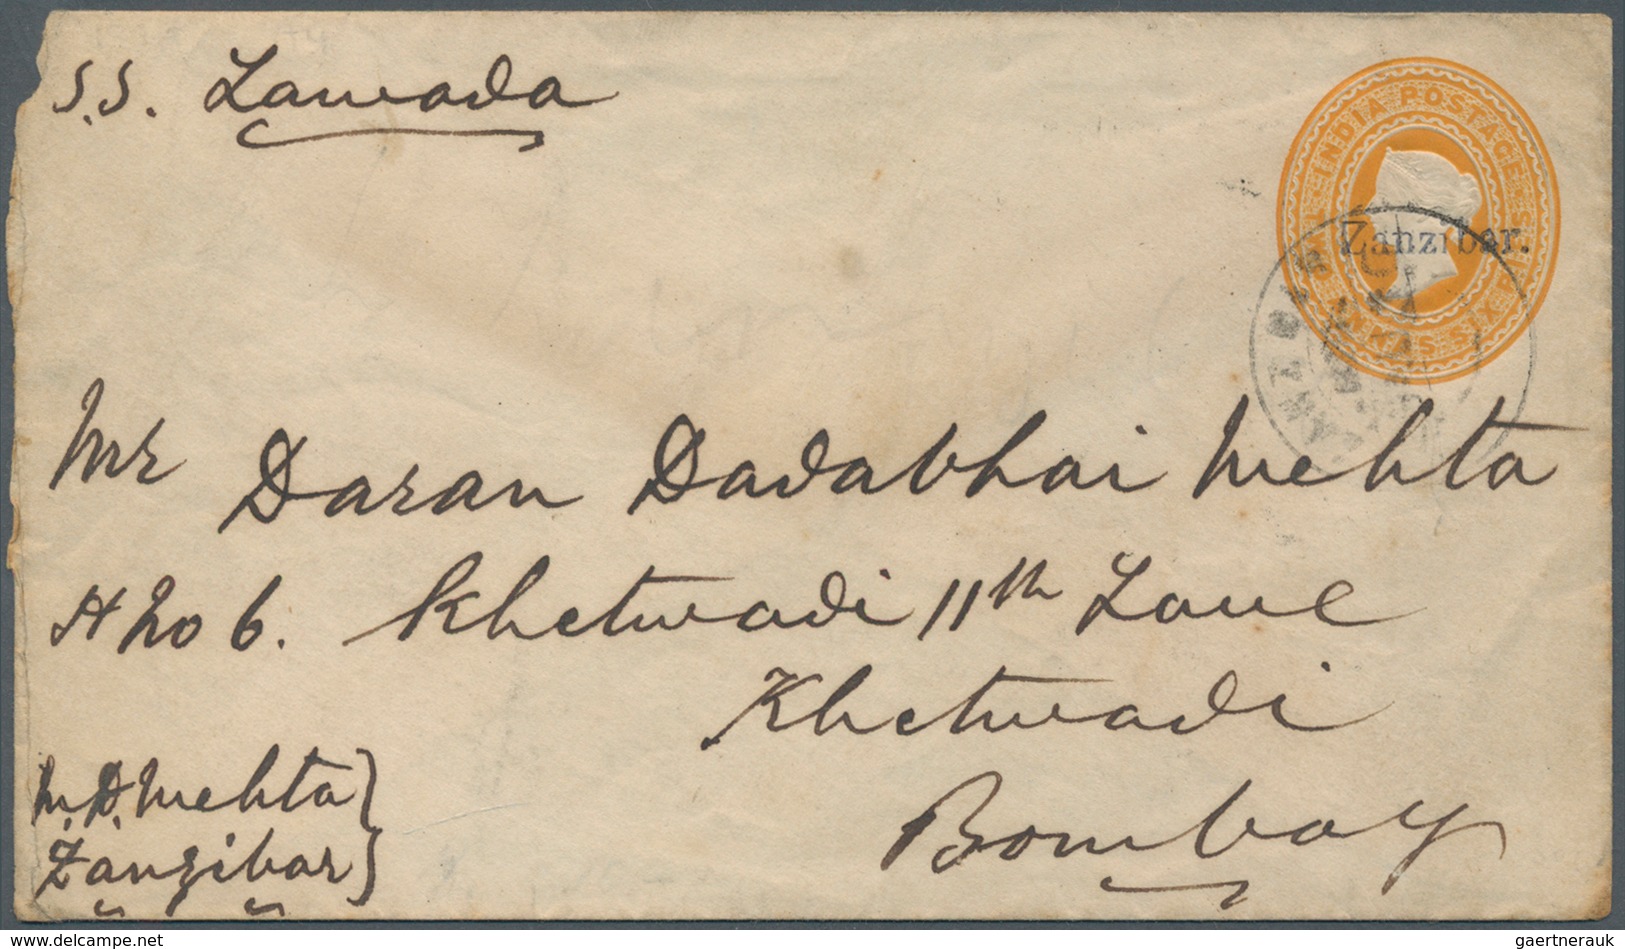 S.S. Lawada
INDIA POSTAGE
TWO ANNAS SIX PIES
Zanzibar.
ZANZIBAR
Mr Daran Dadabhai Mehta
H No 6. Khetwadi 11th Lane
Khetwadi
Bombay
M. D. Mehta
Zanzibar
www.delcampe.net
gaertnerauk